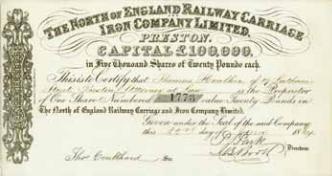 THE NORTH OF ENGLAND RAILWAY CARRIAGE
IRON COMPANY LIMITED,
PRESTON.
CAPITAL £100,000,
in Five Thousand Shares of Twenty Pounds each.
This is to Certify that Thomas of
Street Preston Attorney at Law is the Proprietor
of One Share Numbered 1773 value Twenty Pounds in
The North of England Railway Carriage and Iron Company Limited.
Given under the Seal of the said Company
this day of
Park
Thos Coulthard Sec. Directors